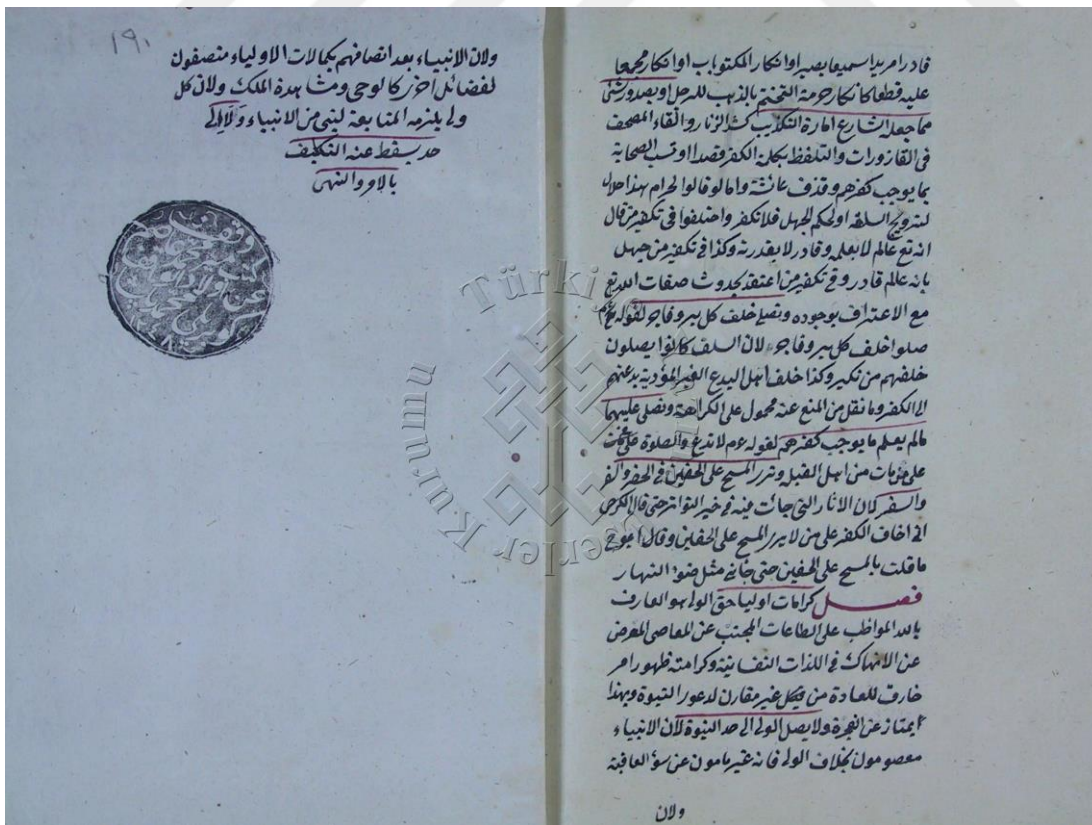 قادرا مريدا سميعا بصيرا او انكار المكتوباب او انكار مجمعا
عليه قطعا كانكار حرمة التختم بالذهب للرجل او بصدور شئ
مما جعله الشارع امارة التكذيب كشد الزنار والقاء المصحف
فى القازورات والتلفظ بكلمة الكفر قصدا او نسب الصحابة
بما يوجب كفرهم وقذف عائشة واما لو قال الحرام هذا حلال
لترويج السلعة او لحكم الجهل فلا تكفر واختلفوا فى تكفير من قال
انه تع عالم لا بعلمه وقادر لا بقدرته وكذا فى تكفير من جهل
بانه عالم قادر وفى تكفير من اعتقد بحدوث صفات الله تع
مع الاعتراف بوجوده ونصلى خلف كل بر وفاجر لقوله عم
صلوا خلف كل بر وفاجر لان السلف كانوا يصلون
خلفهم من نكير وكذا خلف اهل البدع الغير المؤدية بدعتهم
الى الكفر وما نقل من المنع عنه محمول على الكراهة ونصلى عليهما
مالم يعلم ما يوجب كفرهم لقوله عم لا تدع والصلوة على من مات
على من مات من اهل القبلة ونرى المسح على الخفين فى الحضر
والسفر لان الاثار التى جائت فيه فى خير التواتر حتى قال الكرخى
انى اخاف الكفر على من لا يرى المسح على الخفين وقال
ما قلت بالمسح على الخفين حتى جائنى مثل ضوء النهار
فصل كرامات اوليا حق الولى هو العارف
بالله المواظب على الطاعات المجتنب عن المعاصى المعرض
عن الانهماك فى اللذات النفسانية وكرامته ظهور امر
خارق للعادة من قبله غير مقارن لدعوى النبوة وبهذا
يمتاز عن المعجزة ولا يصل الولى الى حد النبوة لان الانبياء
معصومون بخلاف الولى فانه غير مامون عن سوء العاقبة
ولان
١٩٠
ولان الانبياء بعد اتصافهم بكمالات الاولياء متصفون
لفضائل اخرى كالوحى ومشاهدة الملك ولان كل
ولى يلزمه المتابعة لنبى من الانبياء ولا الى
حد يسقط عنه التكليف
بالامر والنهى
Türkiye
Eserler Kurumu